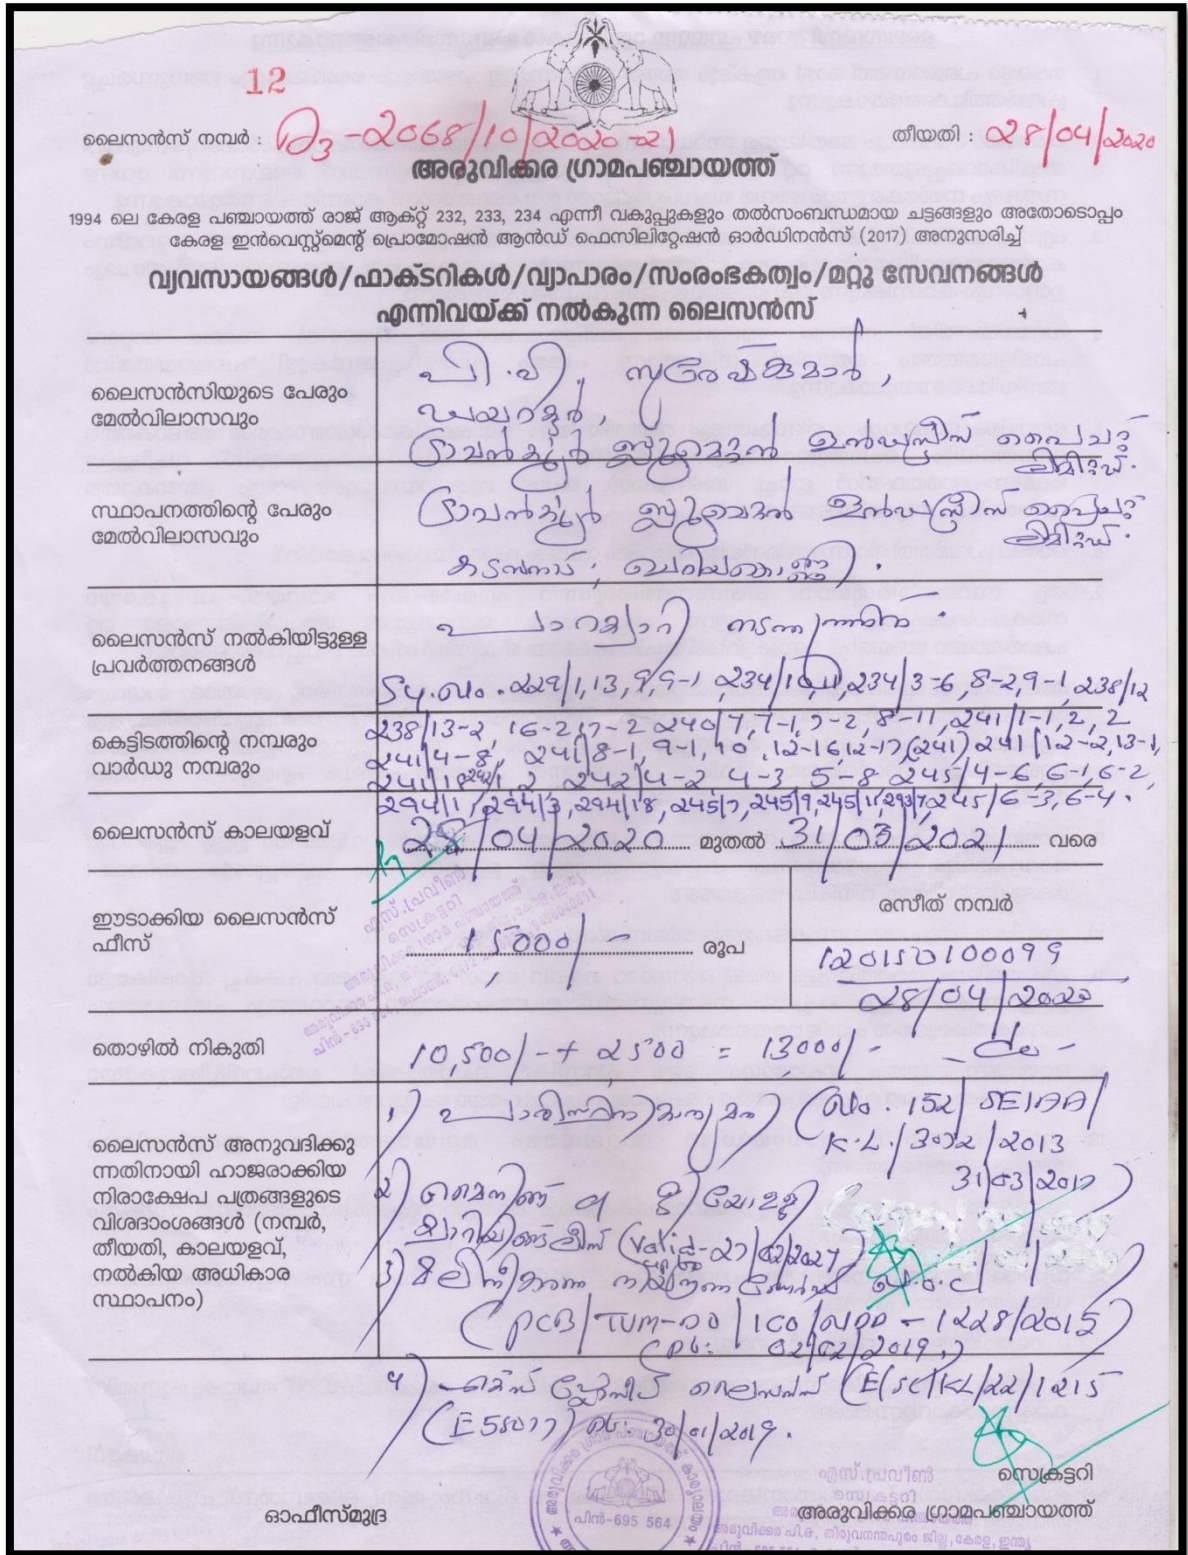 12
ലൈസൻസ് നമ്പർ : D3-2068/10/2020-21 തീയതി : 28/04/2020
അരുവിക്കര ഗ്രാമപഞ്ചായത്ത്
1994 ലെ കേരള പഞ്ചായത്ത് രാജ് ആക്റ്റ് 232, 233, 234 എന്നീ വകുപ്പുകളും തൽസംബന്ധമായ ചട്ടങ്ങളും അതോടൊപ്പം
കേരള ഇൻവെസ്റ്റ്മെന്റ് പ്രൊമോഷൻ ആൻഡ് ഫെസിലിറ്റേഷൻ ഓർഡിനൻസ് (2017) അനുസരിച്ച്
വ്യവസായങ്ങൾ/ഫാക്ടറികൾ/വ്യാപാരം/സംരംഭകത്വം/മറ്റു സേവനങ്ങൾ
എന്നിവയ്ക്ക് നൽകുന്ന ലൈസൻസ്
ലൈസൻസിയുടെ പേരും
മേൽവിലാസവും
പി.വി. സുരേഷ്കുമാർ,
ഡയറക്ടർ,
ട്രാവൻകൂർ ബ്ലൂമെറ്റൽ ഇൻഡസ്ട്രീസ് പ്രൈവറ്റ്
ലിമിറ്റഡ്.
സ്ഥാപനത്തിന്റെ പേരും
മേൽവിലാസവും
ട്രാവൻകൂർ ബ്ലൂമെറ്റൽ ഇൻഡസ്ട്രീസ് പ്രൈവറ്റ്
ലിമിറ്റഡ്.
കടമ്പനാട്, ചെറിയകൊണ്ണി.
ലൈസൻസ് നൽകിയിട്ടുള്ള
പ്രവർത്തനങ്ങൾ
പാറക്വാറി നടത്തുന്നതിന്
Sy.നം. 229/1,13,9,9-1, 234/10, 234/3-6, 8-2, 9-1, 238/12
കെട്ടിടത്തിന്റെ നമ്പരും
വാർഡു നമ്പരും
238/13-2, 16-2, 17-2 240/7, 7-1, 7-2, 8-11, 241/1-1, 2, 2
241/4-8, 241/8-1, 9-1, 10, 12-16 12-17 (241) 241/12-2, 13-1,
242/4-2, 4-3, 5-8 245/4-6, 6-1, 6-2,
294/1, 294/3, 294/18, 245/7, 245/9, 245/11, 293/7, 245/6-3, 6-4.
ലൈസൻസ് കാലയളവ്
28/04/2020 മുതൽ 31/03/2021 വരെ
ഈടാക്കിയ ലൈസൻസ്
ഫീസ്
15000/- രൂപ
രസീത് നമ്പർ
120150100099
28/04/2020
എസ്.പ്രവീൺ
സെക്രട്ടറി
തൊഴിൽ നികുതി
10,500/- + 2500 = 13000/- - do -
ലൈസൻസ് അനുവദിക്കു
ന്നതിനായി ഹാജരാക്കിയ
നിരാക്ഷേപ പത്രങ്ങളുടെ
വിശദാംശങ്ങൾ (നമ്പർ,
തീയതി, കാലയളവ്,
നൽകിയ അധികാര
സ്ഥാപനം)
1) പാരിസ്ഥിതികാനുമതി (നം. 152/SEIAA/
K.L./3072/2013
31/03/2017)
2) മൈനിങ് & ജിയോളജി
ക്വാറിയിങ് ലീസ് (Valid - 27/02/2027)
3) മലിനീകരണ നിയന്ത്രണ ബോർഡ്
(PCB/TVM-DO/ICO/NDD - 1228/2015)
(Dt: 02/02/2019.)
4) എക്സ്പ്ലോസീവ് ലൈസൻസ് (E/SC/KL/22/1215
(E55077) Dt: 30/01/2019.
അരുവിക്കര ഗ്രാമ പഞ്ചായത്ത് കാര്യാലയം
പിൻ-695 564
എസ്.പ്രവീൺ
സെക്രട്ടറി
സെക്രട്ടറി
ഓഫീസ്മുദ്ര
അരുവിക്കര ഗ്രാമപഞ്ചായത്ത്
അരുവിക്കര പി.ഒ, തിരുവനന്തപുരം ജില്ല, കേരള, ഇന്ത്യ